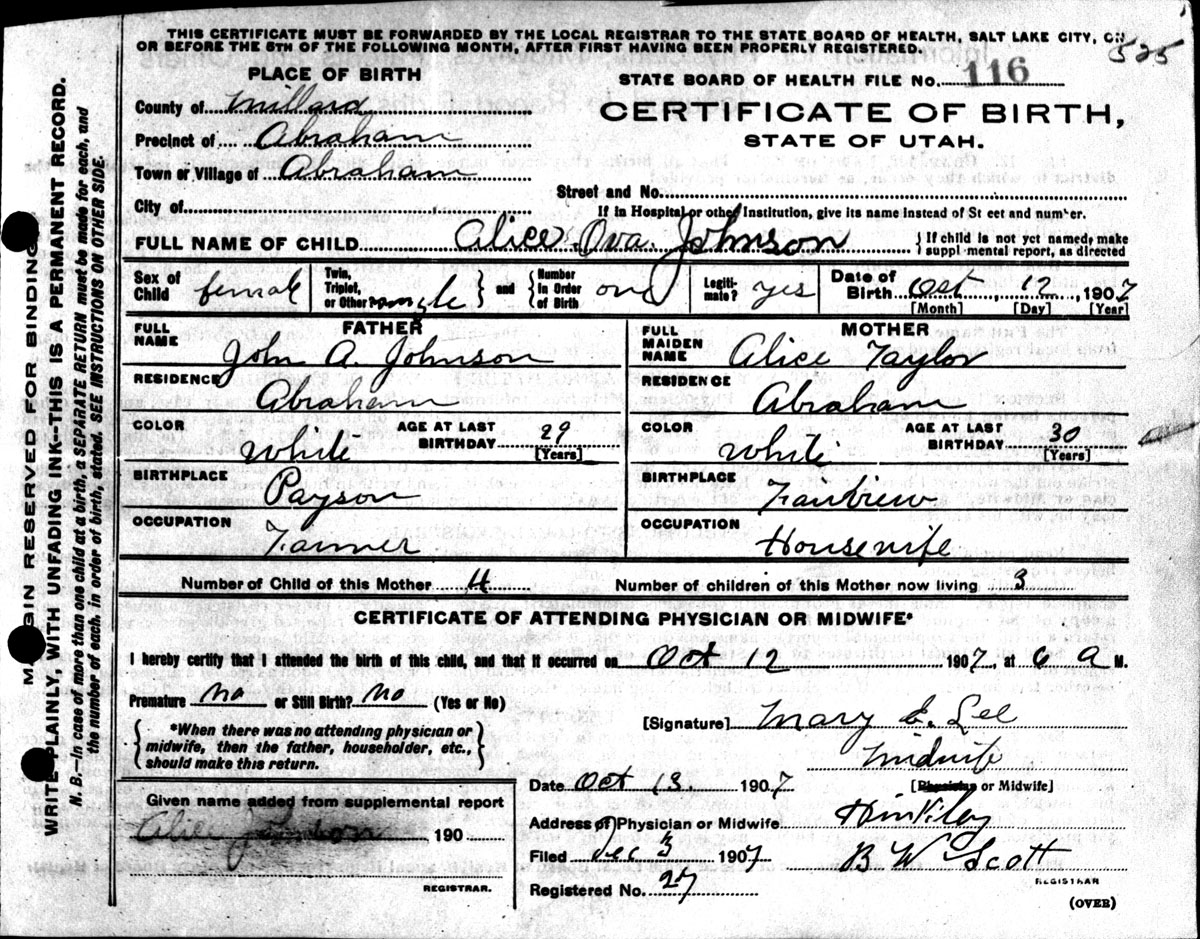 THIS CERTIFICATE MUST BE FORWARDED BY THE LOCAL REGISTRAR TO THE STATE BOARD OF HEALTH, SALT LAKE CITY, ON
OR BEFORE THE 5TH OF THE FOLLOWING MONTH, AFTER FIRST HAVING BEEN PROPERLY REGISTERED.
525
PLACE OF BIRTH
STATE BOARD OF HEALTH FILE No. 116
County of Millard
CERTIFICATE OF BIRTH,
Precinct of Abraham
STATE OF UTAH.
Town or Village of Abraham
Street and No.
City of
If in Hospital or other Institution, give its name instead of St eet and number.
FULL NAME OF CHILD Alice Ova Johnson
{If child is not yet named, make
suppl mental report, as directed
Sex of Child female
Twin, Triplet, or Other single } and { Number in Order of Birth one
Legitimate? yes
Date of Birth Oct 12, 1907
[Month] [Day] [Year]
FATHER
FULL NAME John A. Johnson
RESIDENCE Abraham
COLOR White
AGE AT LAST BIRTHDAY 29 [Years]
BIRTHPLACE Payson
OCCUPATION Farmer
MOTHER
FULL MAIDEN NAME Alice Taylor
RESIDENCE Abraham
COLOR White
AGE AT LAST BIRTHDAY 30 [Years]
BIRTHPLACE Fairview
OCCUPATION Housewife
Number of Child of this Mother 4
Number of children of this Mother now living 3
CERTIFICATE OF ATTENDING PHYSICIAN OR MIDWIFE*
I hereby certify that I attended the birth of this child, and that it occurred on Oct 12 1907, at 6 A M.
Premature no or Still Birth? No (Yes or No)
{*When there was no attending physician or
midwife, then the father, householder, etc.,
should make this return.}
[Signature] Mary E. Lee
Midwife
[Physician or Midwife]
Date Oct 13. 1907
Address of Physician or Midwife Hinkley
Filed Dec 3 1907
B W Scott
REGISTRAR
Registered No. 27
(OVER)
Given name added from supplemental report
Alice Johnson 190
REGISTRAR.
MARGIN RESERVED FOR BINDING
WRITE PLAINLY, WITH UNFADING INK--THIS IS A PERMANENT RECORD.
N. B.—In case of more than one child at a birth, a SEPARATE RETURN must be made for each, and
the number of each, in order of birth, stated. SEE INSTRUCTIONS ON OTHER SIDE.